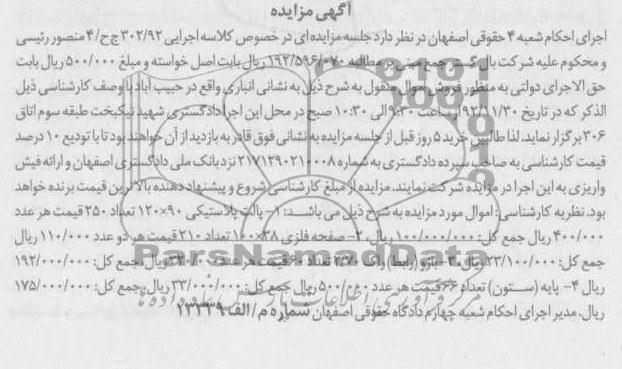 آگهی مزایده
اجرای احکام شعبه ۴ حقوقی اصفهان در نظر دارد جلسه مزایده‌ای در خصوص کلاسه اجرایی ۳۰۲/۹۲ ج ح/۴ منصور رئیسی
و محکوم علیه شرکت بال گستر جم مبنی بر مطالبه ۱۹۳/۵۹۶/۰۷۰ ریال بابت اصل خواسته و مبلغ ۵۰۰/۰۰۰ ریال بابت
حق الاجرای دولتی به منظور فروش اموال منقول به شرح ذیل به نشانی انباری واقع در حبیب آباد با وصف کارشناسی ذیل
الذکر که در تاریخ ۹۲/۱۱/۳۰ ساعت ۹:۳۰ الی ۱۰:۳۰ صبح در محل این اجرا دادگستری شهید نیکبخت طبقه سوم اتاق
۳۰۶ برگزار نماید. لذا طالبین خرید ۵ روز قبل از جلسه مزایده به نشانی فوق قادر به بازدید از آن خواهند بود تا با تودیع ۱۰ درصد
قیمت کارشناسی به صاحب سپرده دادگستری به شماره ۲۱۷۱۲۹۰۲۱۰۰۰۸ نزد بانک ملی دادگستری اصفهان و ارائه فیش
واریزی به این اجرا در مزایده شرکت نمایند. مزایده از مبلغ کارشناسی شروع و پیشنهاد دهنده بالاترین قیمت برنده خواهد
بود. نظریه کارشناسی: اموال مورد مزایده به شرح ذیل می باشد: ۱- پالت پلاستیکی ۹۰×۱۲۰ تعداد ۲۵۰ قیمت هر عدد
۴۰۰/۰۰۰ ریال جمع کل: ۱۰۰/۰۰۰/۰۰۰ ریال ۲- صفحه فلزی ۳۸×۱۰۰ تعداد ۲۱۰ قیمت هر دو عدد ۱۱۰/۰۰۰ ریال
جمع کل: ۲۳/۱۰۰/۰۰۰ ریال ۳- بازو (رابط) راک ۲۷۰ تعداد ۶۰ قیمت هر عدد ۳۲۰/۰۰۰ ریال جمع کل: ۱۹۲/۰۰۰
ریال ۴- پایه (ستون) تعداد ۶۶ قیمت هر عدد ۵۰۰/۰۰۰ ریال جمع کل: ۳۳/۰۰۰/۰۰۰ ریال جمع کل: ۱۷۵/۰۰۰/۰۰۰
ریال. مدیر اجرای احکام شعبه چهارم دادگاه حقوقی اصفهان شماره م/الف ۱۳۳۳۹
ParsNamadData